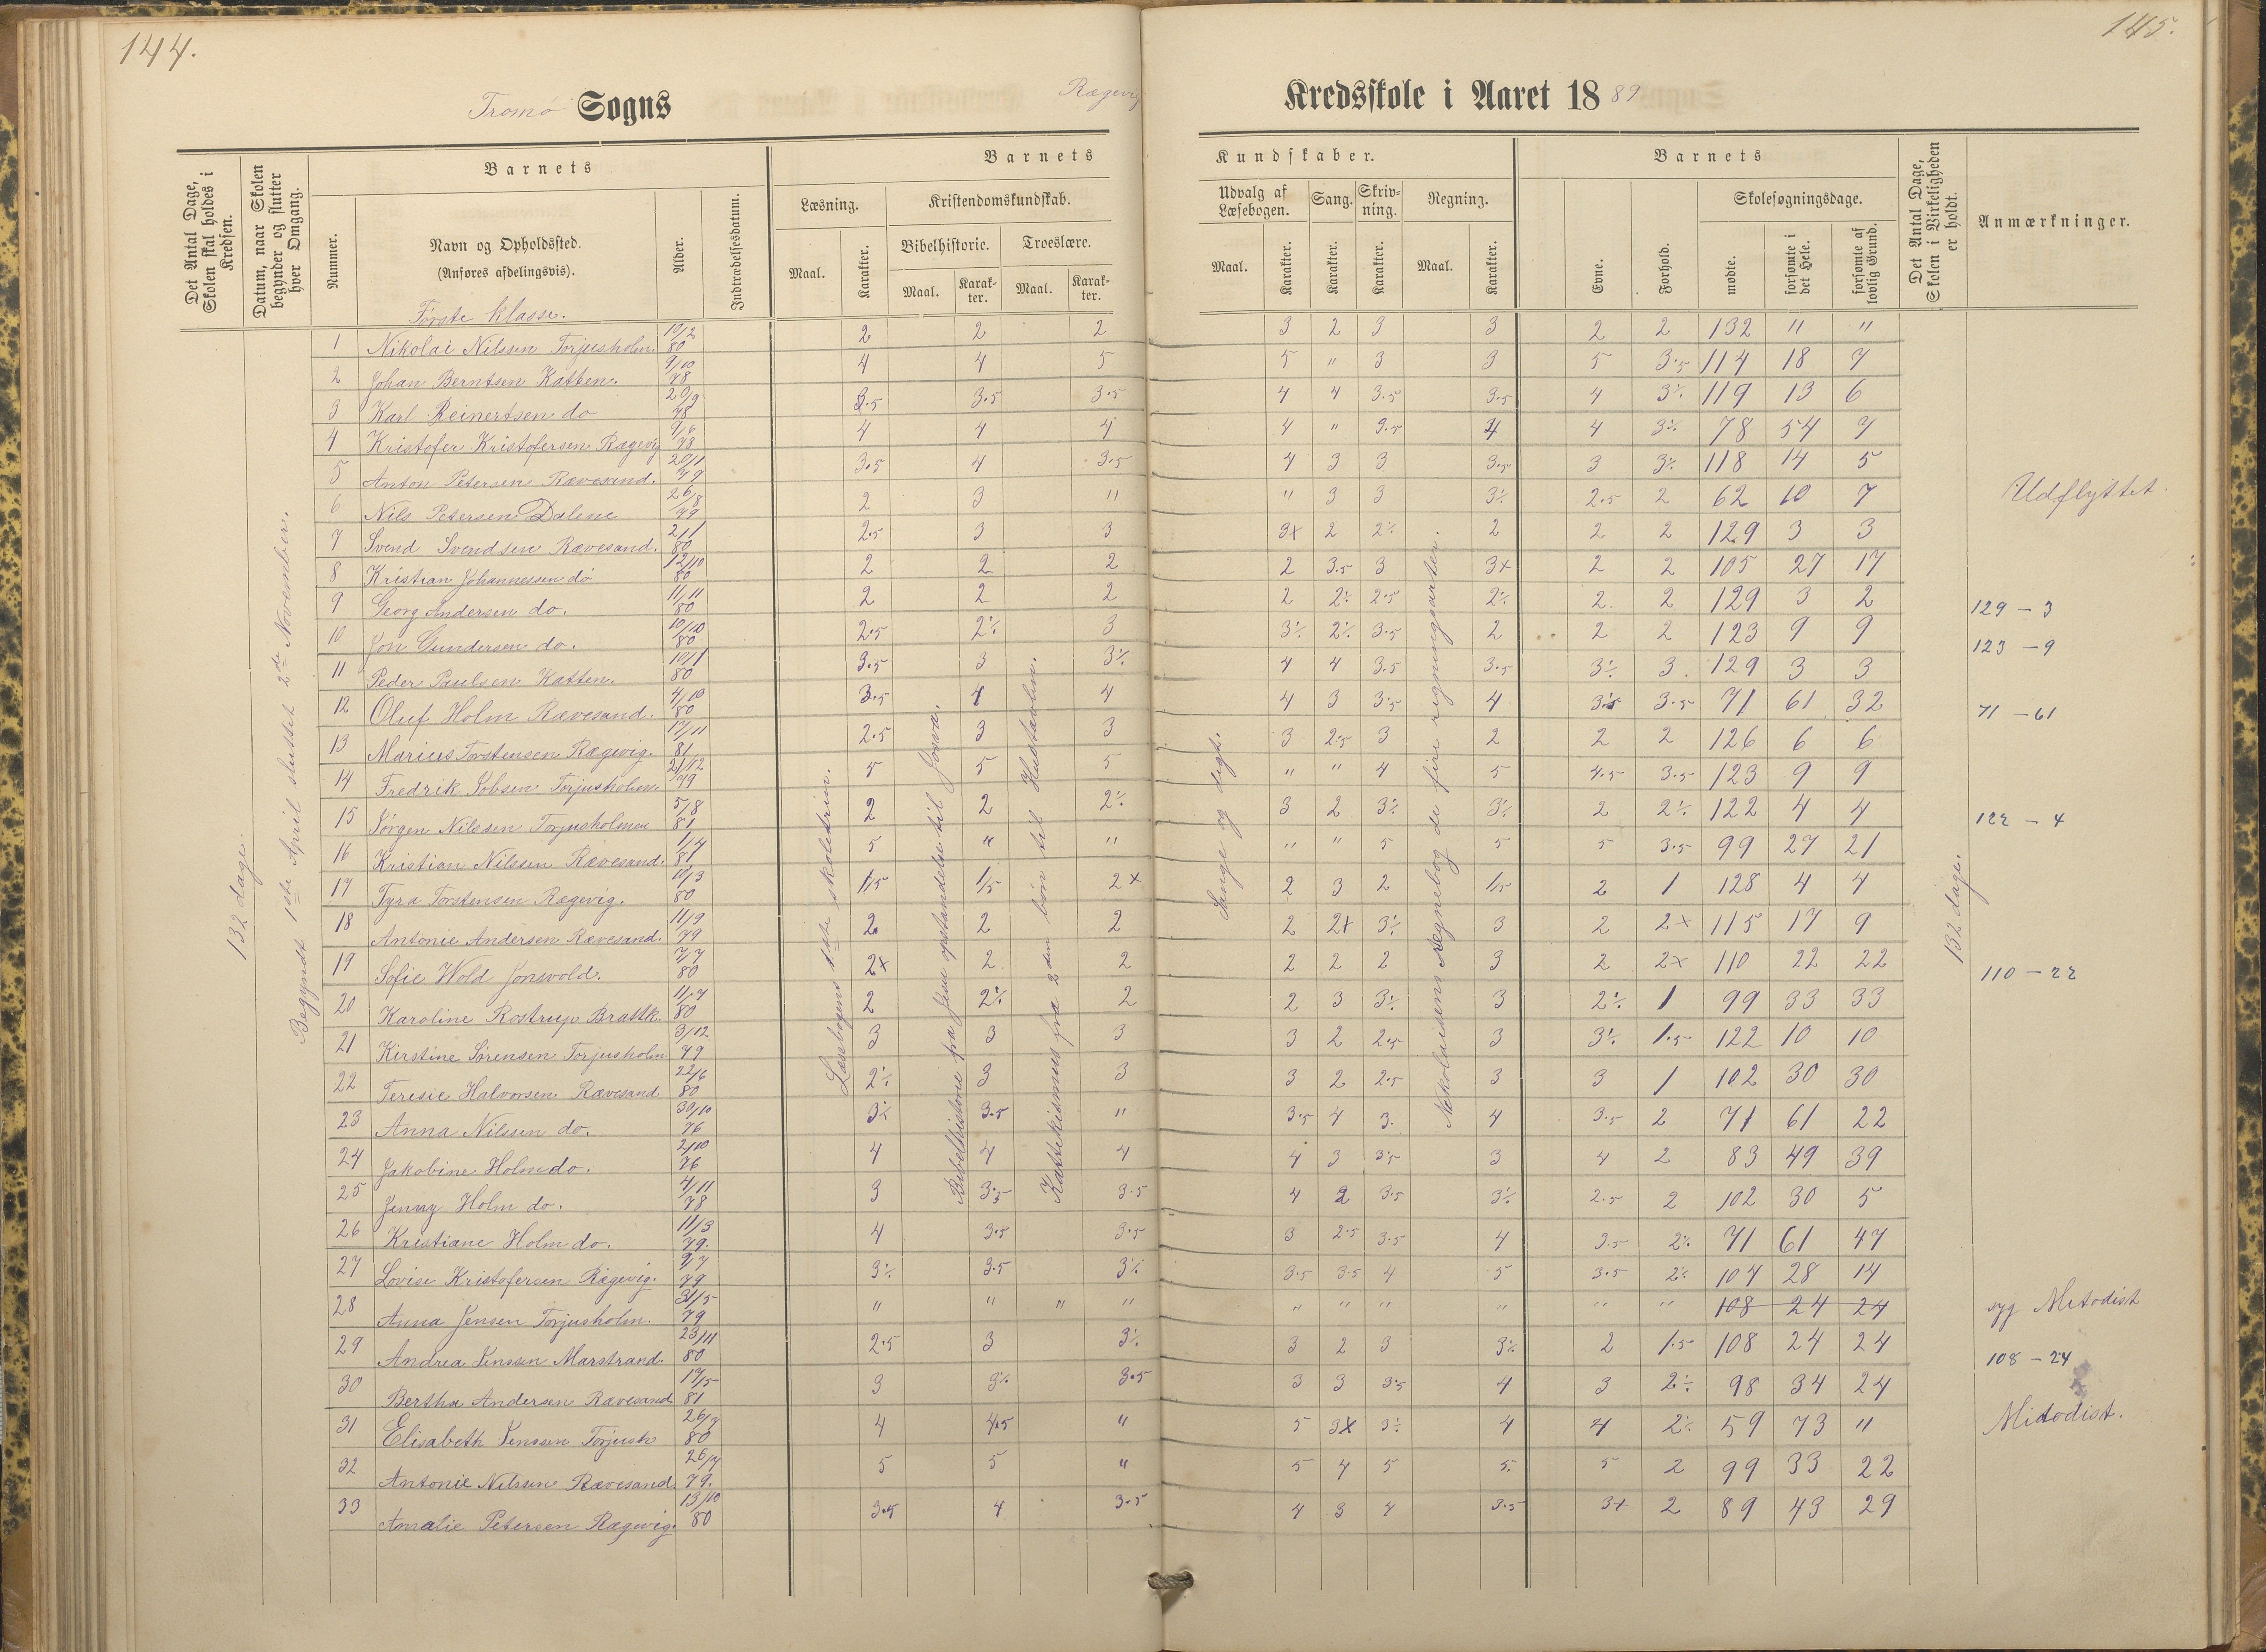 144.
145.
Tromø Sogns
Rægevig
Kredsskole i Aaret 1889
Det Antal Dage, Skolen skal holdes i Kredsen.
Datum, naar Skolen begynder og slutter hver Omgang.
Barnets
Nummer.
Navn og Opholdssted.
(Anføres afdelingsvis).
Alder.
Indtrædelsesdatum.
Barnets Kundskaber.
Læsning.
Maal.
Karakter.
Kristendomskundskab.
Bibelhistorie.
Maal.
Karakter.
Troeslære.
Maal.
Karakter.
Udvalg af Læsebogen.
Maal.
Karakter.
Sang.
Karakter.
Skrivning.
Karakter.
Regning.
Maal.
Karakter.
Barnets
Evne.
Forhold.
Skolesøgningsdage.
mødte.
forsømte i det Hele.
forsømte af lovlig Grund.
Det Antal Dage, Skolen i Virkeligheden er holdt.
Anmærkninger.
132 dage.
Begyndt 1ste April sluttet 2de November.
Læsebogens 1ste skoletrin.
Bibelhistorie fra Jesu opstandelse til Josva.
Kattekismus fra 2den bøn til Hustavlen.
Sange og digt.
Nikolaisens Regnebog de fire regningsarter.
132 dage.
Første klasse.
1 Nikolai Nilssen Torjusholm. 10/2 80 2 2 2 3 2 3 3 2 2 132 " "
2 Johan Berntsen Katten. 9/10 78 4 4 5 5 " 3 3 5 3.5 114 18 7
3 Karl Reinertsen do 20/9 78 3.5 3.5 3.5 4 4 3.5 3.5 4 3⁒ 119 13 6
4 Kristofer Kristofersen Rægevig 9/6 78 4 4 4 4 " 3.5 4 4 3⁒ 78 54 7
5 Anton Petersen Rævesand. 20/11 79 3.5 4 3.5 4 3 3 3.5 3 3⁒ 118 14 5
6 Nils Petersen Dalene 26/8 79 2 3 " " 3 3 3⁒ 2.5 2 62 10 7 Udflyttet.
7 Svend Svendsen Rævesand. 2/1 80 2.5 3 3 3x 2 2⁒ 2 2 2 129 3 3
8 Kristian Johannessen do 12/10 80 2 2 2 2 3.5 3 3x 2 2 105 27 17
9 Georg Andersen do. 11/11 80 2 2 2 2 2⁒ 2.5 2⁒ 2 2 129 3 2 129 - 3
10 Jon Gundersen do. 10/10 80 2.5 2⁒ 3 3⁒ 2⁒ 3.5 2 2 2 123 9 9 123 - 9
11 Peder Paulsen Katten. 10/1 80 3.5 3 3⁒ 4 4 3.5 3.5 3⁒ 3 129 3 3
12 Oluf Holm Rævesand. 4/10 80 3.5 4 4 4 3 3.5 4 3.5 3.5 71 61 32 71 - 61
13 Marius Torstensen Rægevig. 17/11 81 2.5 3 3 3 2.5 3 2 2 2 126 6 6
14 Fredrik Jobsen Torjusholm 21/12 79 5 5 5 " " 4 5 4.5 3.5 123 9 9
15 Jørgen Nilssen Torjusholmen 5/8 81 2 2 2⁒ 3 2 3⁒ 3⁒ 2 2⁒ 122 4 4 122 - 4
16 Kristian Nilssen Rævesand. 1/4 81 5 " " " " 5 5 5 3.5 99 27 21
17 Tyra Torstensen Rægevig. 10/3 80 1.5 1.5 2x 2 3 2 1.5 2 1 128 4 4
18 Antonie Andersen Rævesand. 11/9 79 2 2 2 2 2x 3⁒ 3 2 2x 115 17 9
19 Sofie Wold Jonsvold. 7/7 80 2x 2 2 2 2 2 3 2 2x 110 22 22 110 - 22
20 Karoline Rostrup Brattk. 11/7 80 2 2⁒ 2 2 3 3⁒ 3 2⁒ 1 99 33 33
21 Kirstine Sørensen Torjusholm. 3/12 79 3 3 3 3 2 2.5 3 3⁒ 1.5 122 10 10
22 Teresie Halvorsen Rævesand 22/6 80 2⁒ 3 3 3 2 2.5 3 3 1 102 30 30
23 Anna Nilssen do. 30/10 76 3⁒ 3.5 " 3.5 4 3. 4 3.5 2 71 61 22
24 Jakobine Holm do. 2/10 76 4 4 4 4 3 3.5 3 4 2 83 49 39
25 Jenny Holm do. 4/11 78 3 3.5 3.5 4 2 3.5 3⁒ 2.5 2 102 30 5
26 Kristiane Holm do. 11/3 79. 4 3.5 3.5 3 2.5 3.5 4 3.5 2⁒ 71 61 47
27 Lovise Kristofersen Rægevig. 9/7 79 3⁒ 3.5 3⁒ 3.5 3.5 4 5 3.5 2⁒ 104 28 14
28 Anna Jensen Torjusholm. 31/5 79 " " " " " " " " " " 108 24 24 syg Metodist
29 Andrea Jenssen Marstrand. 23/11 80 2.5 3 3⁒ 3 2 3 3⁒ 2 1.5 108 24 24 108 - 24
30 Bertha Andersen Rævesand 17/5 81 3 3⁒ 3.5 3 3 3.5 4 3 2⁒ 98 34 24
31 Elisabeth Jenssen Torjush 26/7 80 4 4.5 " 5 3x 3⁒ 4 4 2⁒ 59 73 " Mitodist.
32 Antonie Nilssen Rævesand. 26/7 79. 5 5 " 5 4 5 5. 5 2 99 33 22
33 Amalie Petersen Rægevig. 13/10 80 3.5 4 3.5 4 3 4 3.5 3x 2 89 43 29